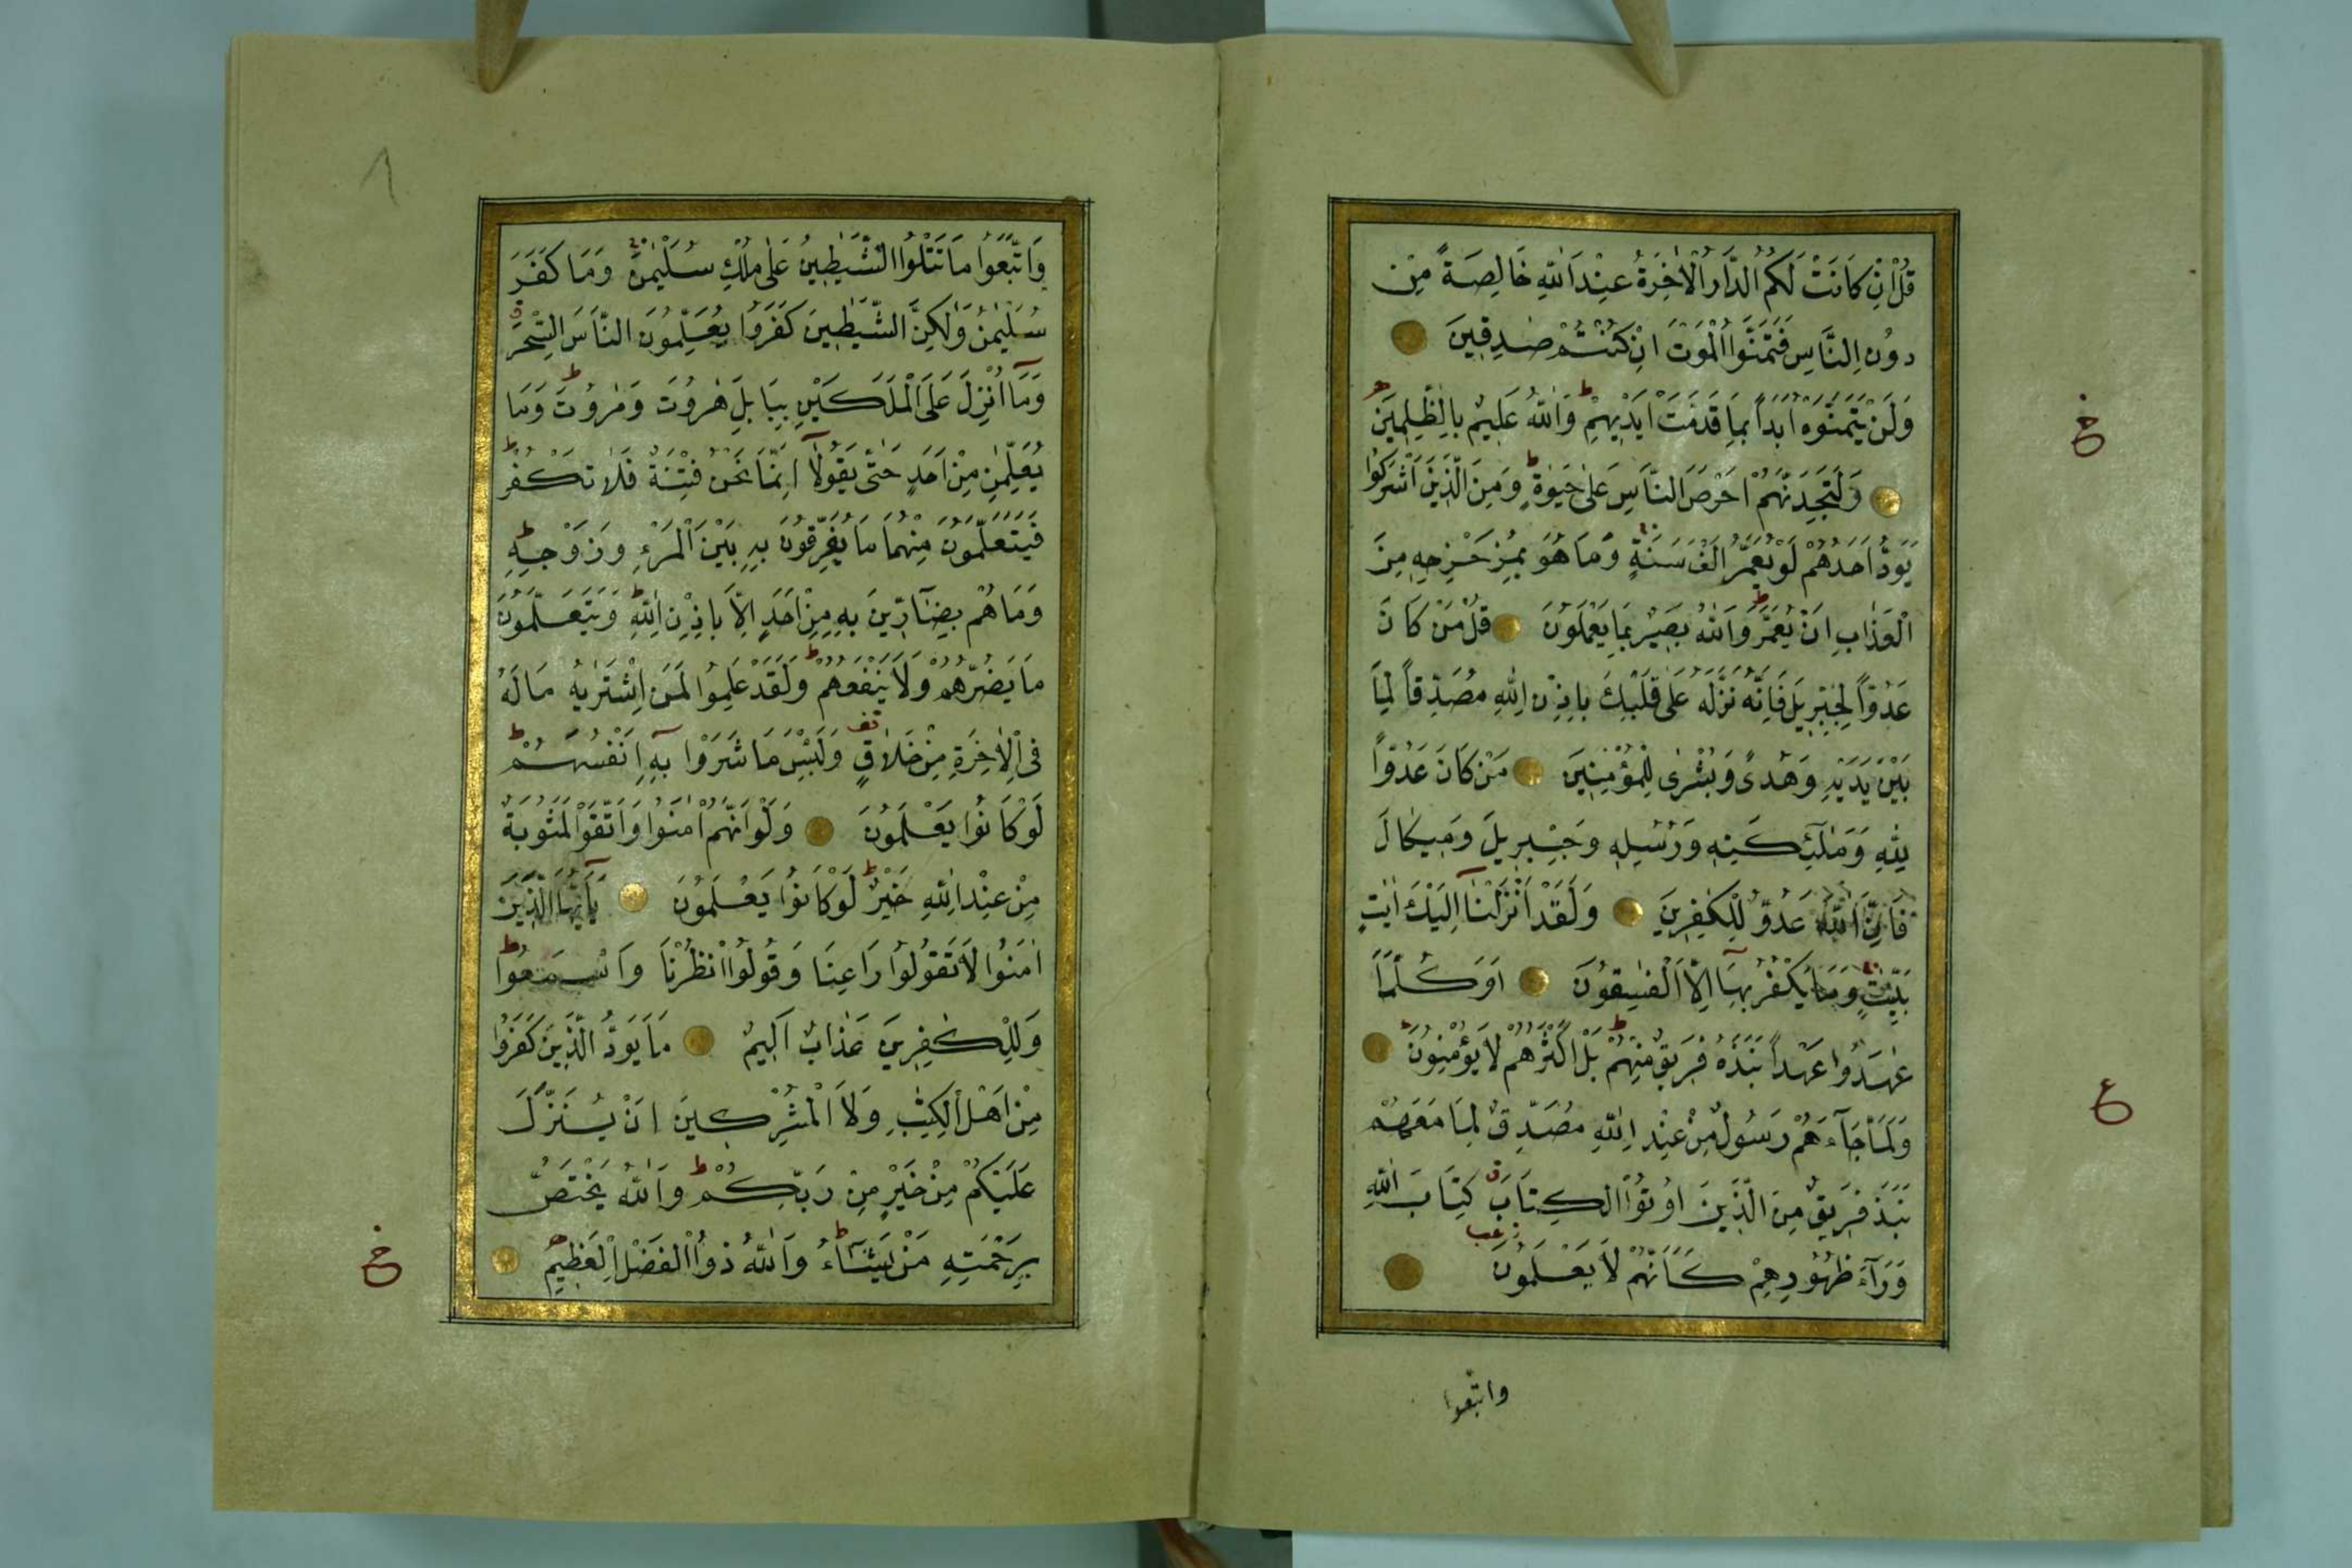 قُلْ اِنْ كَانَتْ لَكُمُ الدَّارُ الْاٰخِرَةُ عِنْدَ اللّٰهِ خَالِصَةً مِنْ
دُونِ النَّاسِ فَتَمَنَّوُا الْمَوْتَ اِنْ كُنْتُمْ صٰدِقِينَ
وَلَنْ يَتَمَنَّوْهُ اَبَداً بِمَا قَدَّمَتْ اَيْدِيهِمْ ط وَاللّٰهُ عَلِيمٌ بِالظّٰلِمِينَ
وَلَتَجِدَنَّهُمْ اَحْرَصَ النَّاسِ عَلٰى حَيٰوةٍ ط وَمِنَ الَّذِينَ اَشْرَكُوا
يَوَدُّ اَحَدُهُمْ لَوْ يُعَمَّرُ اَلْفَ سَنَةٍ وَمَا هُوَ بِمُزَحْزِحِهِ مِنَ
الْعَذَابِ اَنْ يُعَمَّرَ ط وَاللّٰهُ بَصِيرٌ بِمَا يَعْمَلُونَ قُلْ مَنْ كَانَ
عَدُوّاً لِجِبْرِيلَ فَاِنَّهُ نَزَّلَهُ عَلٰى قَلْبِكَ بِاِذْنِ اللّٰهِ مُصَدِّقاً لِمَا
بَيْنَ يَدَيْهِ وَهُدًى وَبُشْرٰى لِلْمُؤْمِنِينَ مَنْ كَانَ عَدُوّاً
لِلّٰهِ وَمَلٰٓئِكَتِهِ وَرُسُلِهِ وَجِبْرِيلَ وَمِيكَالَ
فَاِنَّ اللّٰهَ عَدُوٌّ لِلْكٰفِرِينَ وَلَقَدْ اَنْزَلْنَٓا اِلَيْكَ اٰيٰتٍ
بَيِّنٰتٍ وَمَا يَكْفُرُ بِهَٓا اِلَّا الْفٰسِقُونَ اَوَكُلَّمَا
عٰهَدُوا عَهْداً نَبَذَهُ فَرِيقٌ مِنْهُمْ ط بَلْ اَكْثَرُهُمْ لَا يُؤْمِنُونَ
وَلَمَّا جَٓاءَهُمْ رَسُولٌ مِنْ عِنْدِ اللّٰهِ مُصَدِّقٌ لِمَا مَعَهُمْ
نَبَذَ فَرِيقٌ مِنَ الَّذِينَ اُوتُوا الْكِتَابَ ق كِتَابَ اللّٰهِ
وَرَٓاءَ ظُهُورِهِمْ كَاَنَّهُمْ لَا يَعْلَمُونَ
واتبعوا
ع
وَاتَّبَعُوا مَا تَتْلُوا الشَّيٰطِينُ عَلٰى مُلْكِ سُلَيْمٰنَ وَمَا كَفَرَ
سُلَيْمٰنُ وَلٰكِنَّ الشَّيٰطِينَ كَفَرُوا يُعَلِّمُونَ النَّاسَ السِّحْرَ ق
وَمَٓا اُنْزِلَ عَلَى الْمَلَكَيْنِ بِبَابِلَ هٰرُوتَ وَمٰرُوتَ ط وَمَا
يُعَلِّمٰنِ مِنْ اَحَدٍ حَتّٰى يَقُولَٓا اِنَّمَا نَحْنُ فِتْنَةٌ فَلَا تَكْفُرْ ط
فَيَتَعَلَّمُونَ مِنْهُمَا مَا يُفَرِّقُونَ بِهِ بَيْنَ الْمَرْءِ وَزَوْجِهِ ط
وَمَا هُمْ بِضَٓارِّينَ بِهِ مِنْ اَحَدٍ اِلَّا بِاِذْنِ اللّٰهِ ط وَيَتَعَلَّمُونَ
مَا يَضُرُّهُمْ وَلَا يَنْفَعُهُمْ ط وَلَقَدْ عَلِمُوا لَمَنِ اشْتَرٰيهُ مَا لَهُ
فِي الْاٰخِرَةِ مِنْ خَلَاقٍ قف وَلَبِئْسَ مَا شَرَوْا بِهِٓ اَنْفُسَهُمْ ط
لَوْ كَانُوا يَعْلَمُونَ وَلَوْ اَنَّهُمْ اٰمَنُوا وَاتَّقَوْا لَمَثُوبَةٌ
مِنْ عِنْدِ اللّٰهِ خَيْرٌ ط لَوْ كَانُوا يَعْلَمُونَ يَٓا اَيُّهَا الَّذِينَ
اٰمَنُوا لَا تَقُولُوا رَاعِنَا وَقُولُوا انْظُرْنَا وَاسْمَعُوا ط
وَلِلْكٰفِرِينَ عَذَابٌ اَلِيمٌ مَا يَوَدُّ الَّذِينَ كَفَرُوا
مِنْ اَهْلِ الْكِتٰبِ وَلَا الْمُشْرِكِينَ اَنْ يُنَزَّلَ
عَلَيْكُمْ مِنْ خَيْرٍ مِنْ رَبِّكُمْ ط وَاللّٰهُ يَخْتَصُّ
بِرَحْمَتِهِ مَنْ يَشَٓاءُ ط وَاللّٰهُ ذُو الْفَضْلِ الْعَظِيمِ